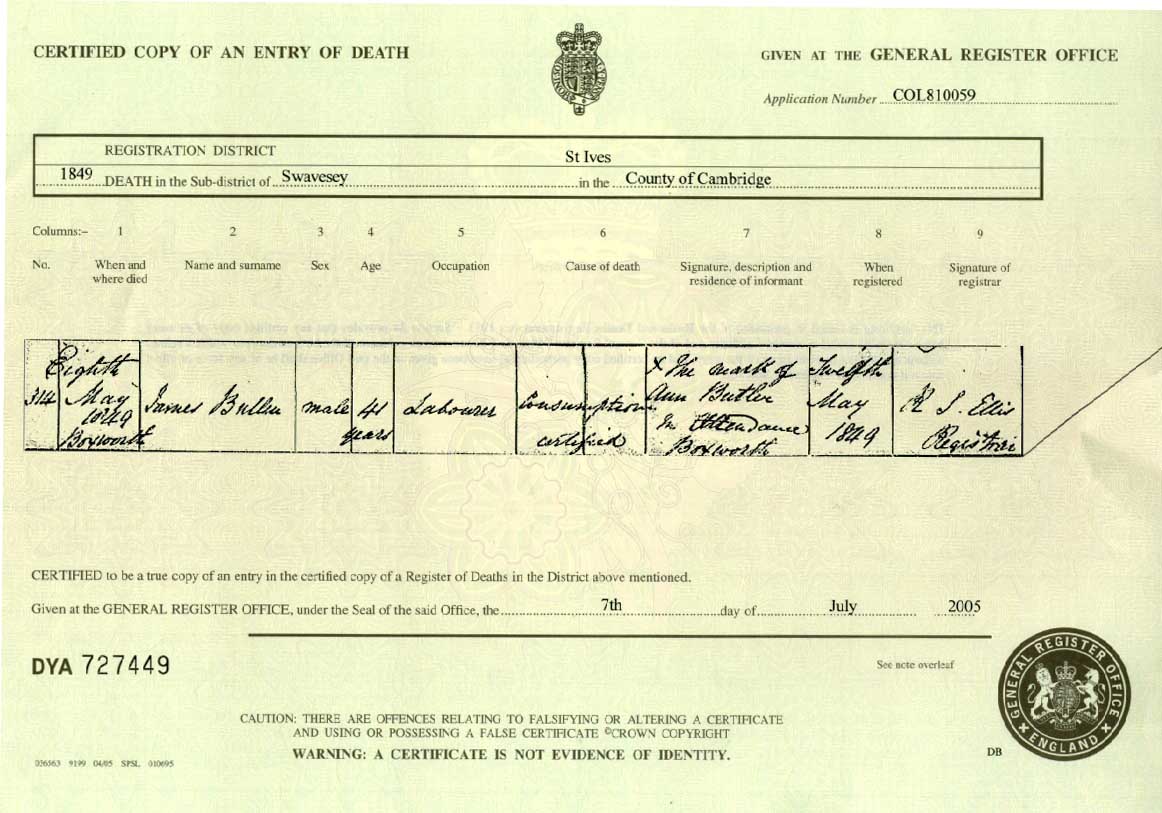 CERTIFIED COPY OF AN ENTRY OF DEATH
GIVEN AT THE GENERAL REGISTER OFFICE
Application Number COL810059
REGISTRATION DISTRICT St Ives
1849 DEATH in the Sub-district of Swavesey in the County of Cambridge
Columns:– 1 2 3 4 5 6 7 8 9
No. When and where died Name and surname Sex Age Occupation Cause of death Signature, description and residence of informant When registered Signature of registrar
314
Eighth
May
1849
Boxworth
James Bullen
male
41
years
Labourer
Consumption
certified
X The mark of
Ann Butler
In Attendance
Boxworth
Twelfth
May
1849
R S. Ellis
Registrar
CERTIFIED to be a true copy of an entry in the certified copy of a Register of Deaths in the District above mentioned.
Given at the GENERAL REGISTER OFFICE, under the Seal of the said Office, the 7th day of July 2005
DYA 727449
See note overleaf
CAUTION: THERE ARE OFFENCES RELATING TO FALSIFYING OR ALTERING A CERTIFICATE
AND USING OR POSSESSING A FALSE CERTIFICATE ©CROWN COPYRIGHT
WARNING: A CERTIFICATE IS NOT EVIDENCE OF IDENTITY.
GENERAL REGISTER OFFICE
ENGLAND
DB
036563 9199 04/05 SPSL 010695